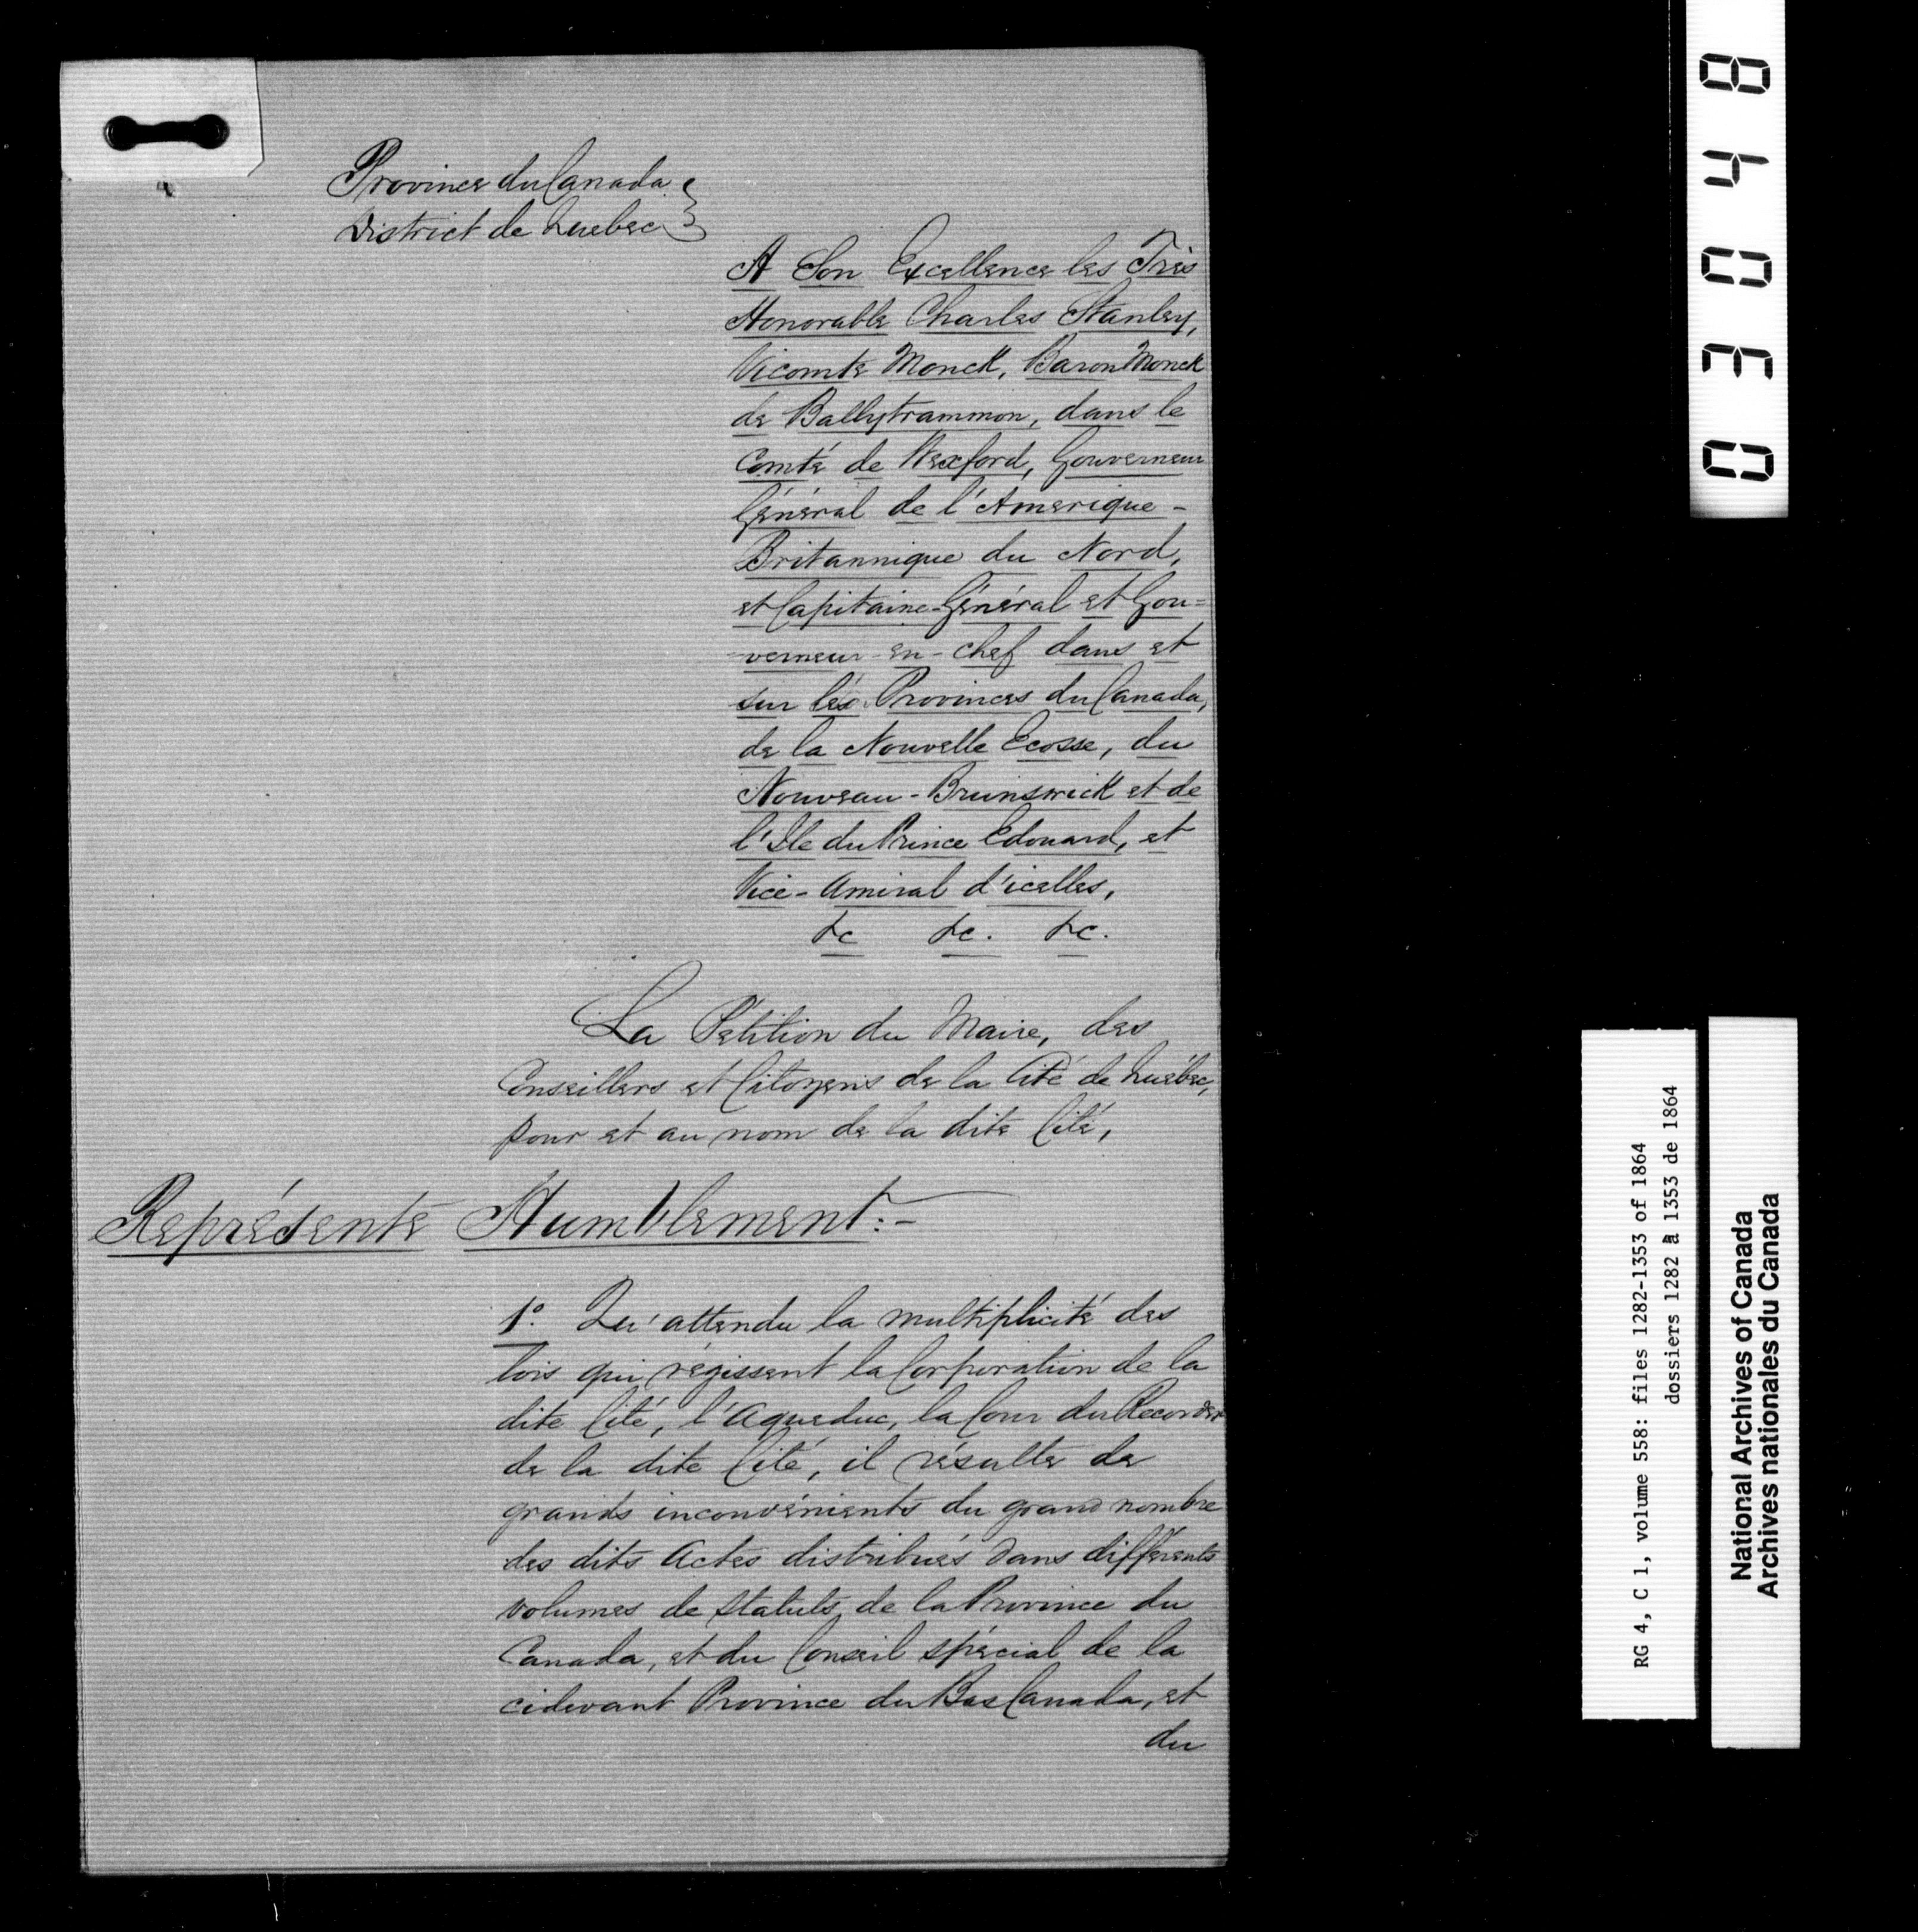 Province du Canada
District de Quebec
A Son Excellence les Très
Honorable Charles Stanley,
Vicomte Monck, Baron Monck
de Ballytrammon, dans le
Comté de Wexford, Gouverneur
Général de l'Amerique-
Britannique du Nord,
et Capitaine-Général et Gou=
=verneur-en-chef dans et
sur les Provinces du Canada,
de la Nouvelle Ecosse, du
Nouveau-Brunswick et de
l'Ile du Prince Edouard, et
Vice-Amiral d'icelles,
&c &c. &c.
La Pétition du Maire, des
Conseillers et Citoyens de la Cité de Québec,
pour et au nom de la dite Cité,
Représente Humblement:-
1º. Qu'attendu la multiplicité des
lois qui régissent la Corporation de la
dite Cité, l'Aqueduc, la Cour du Recorder
de la dite Cité, il résulte de
grands inconvénients du grand nombre
des dits Actes distribués dans différents
volumes de Statuts de la Province du
Canada, et du Conseil spécial de la
cidevant Province du Bas Canada, et
du
03048
RG 4, C 1, volume 558: files 1282-1353 of 1864
dossiers 1282 à 1353 de 1864
National Archives of Canada
Archives nationales du Canada